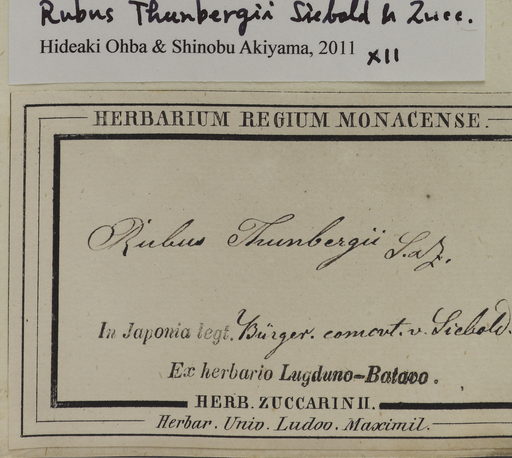 Rubus Thunbergii Siebold & Zucc.
Hideaki Ohba & Shinobu Akiyama, 2011 XII
HERBARIUM REGIUM MONACENSE.
Rubus Thunbergii S. & Z.
In Japonia legt. Bürger. comt. v. Siebold.
Ex herbario Lugduno-Batavo.
HERB. ZUCCARINII.
Herbar. Univ. Ludov. Maximil.